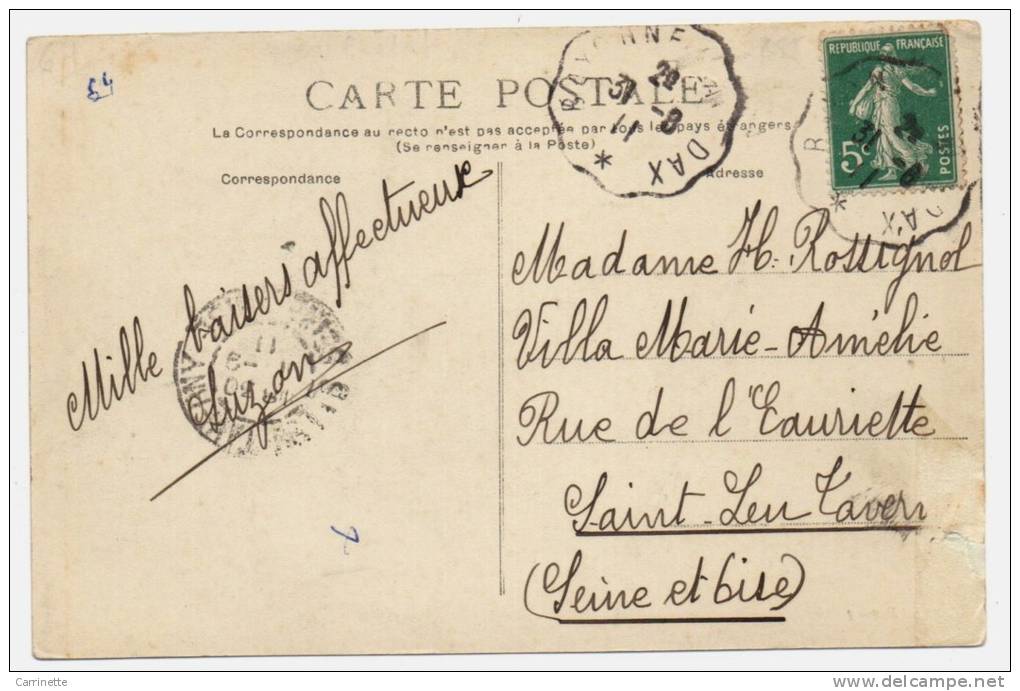 64
CARTE POSTALE
La Correspondance au recto n'est pas acceptée par tous les pays étrangers
(Se renseigner à la Poste)
Correspondance
Adresse
BAYONNE A DAX
31 -8
11
*
RÉPUBLIQUE FRANÇAISE
5c
POSTES
DAX
*
Mille baisers affectueux
Suzon
Madame H. Rossignol
Villa Marie-Amélie
Rue de l'Eauriette
Saint-Leu Tavern
(Seine et Oise)
Carrinette
www.delcampe.net